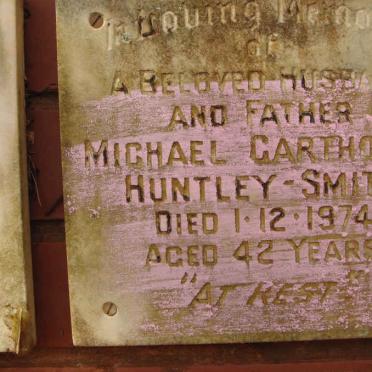 In Loving Memo
of
A BELOVED HUSBA
AND FATHER
MICHAEL GARTHO
HUNTLEY-SMIT
DIED 1·12·1974
AGED 42 YEARS
"AT REST"